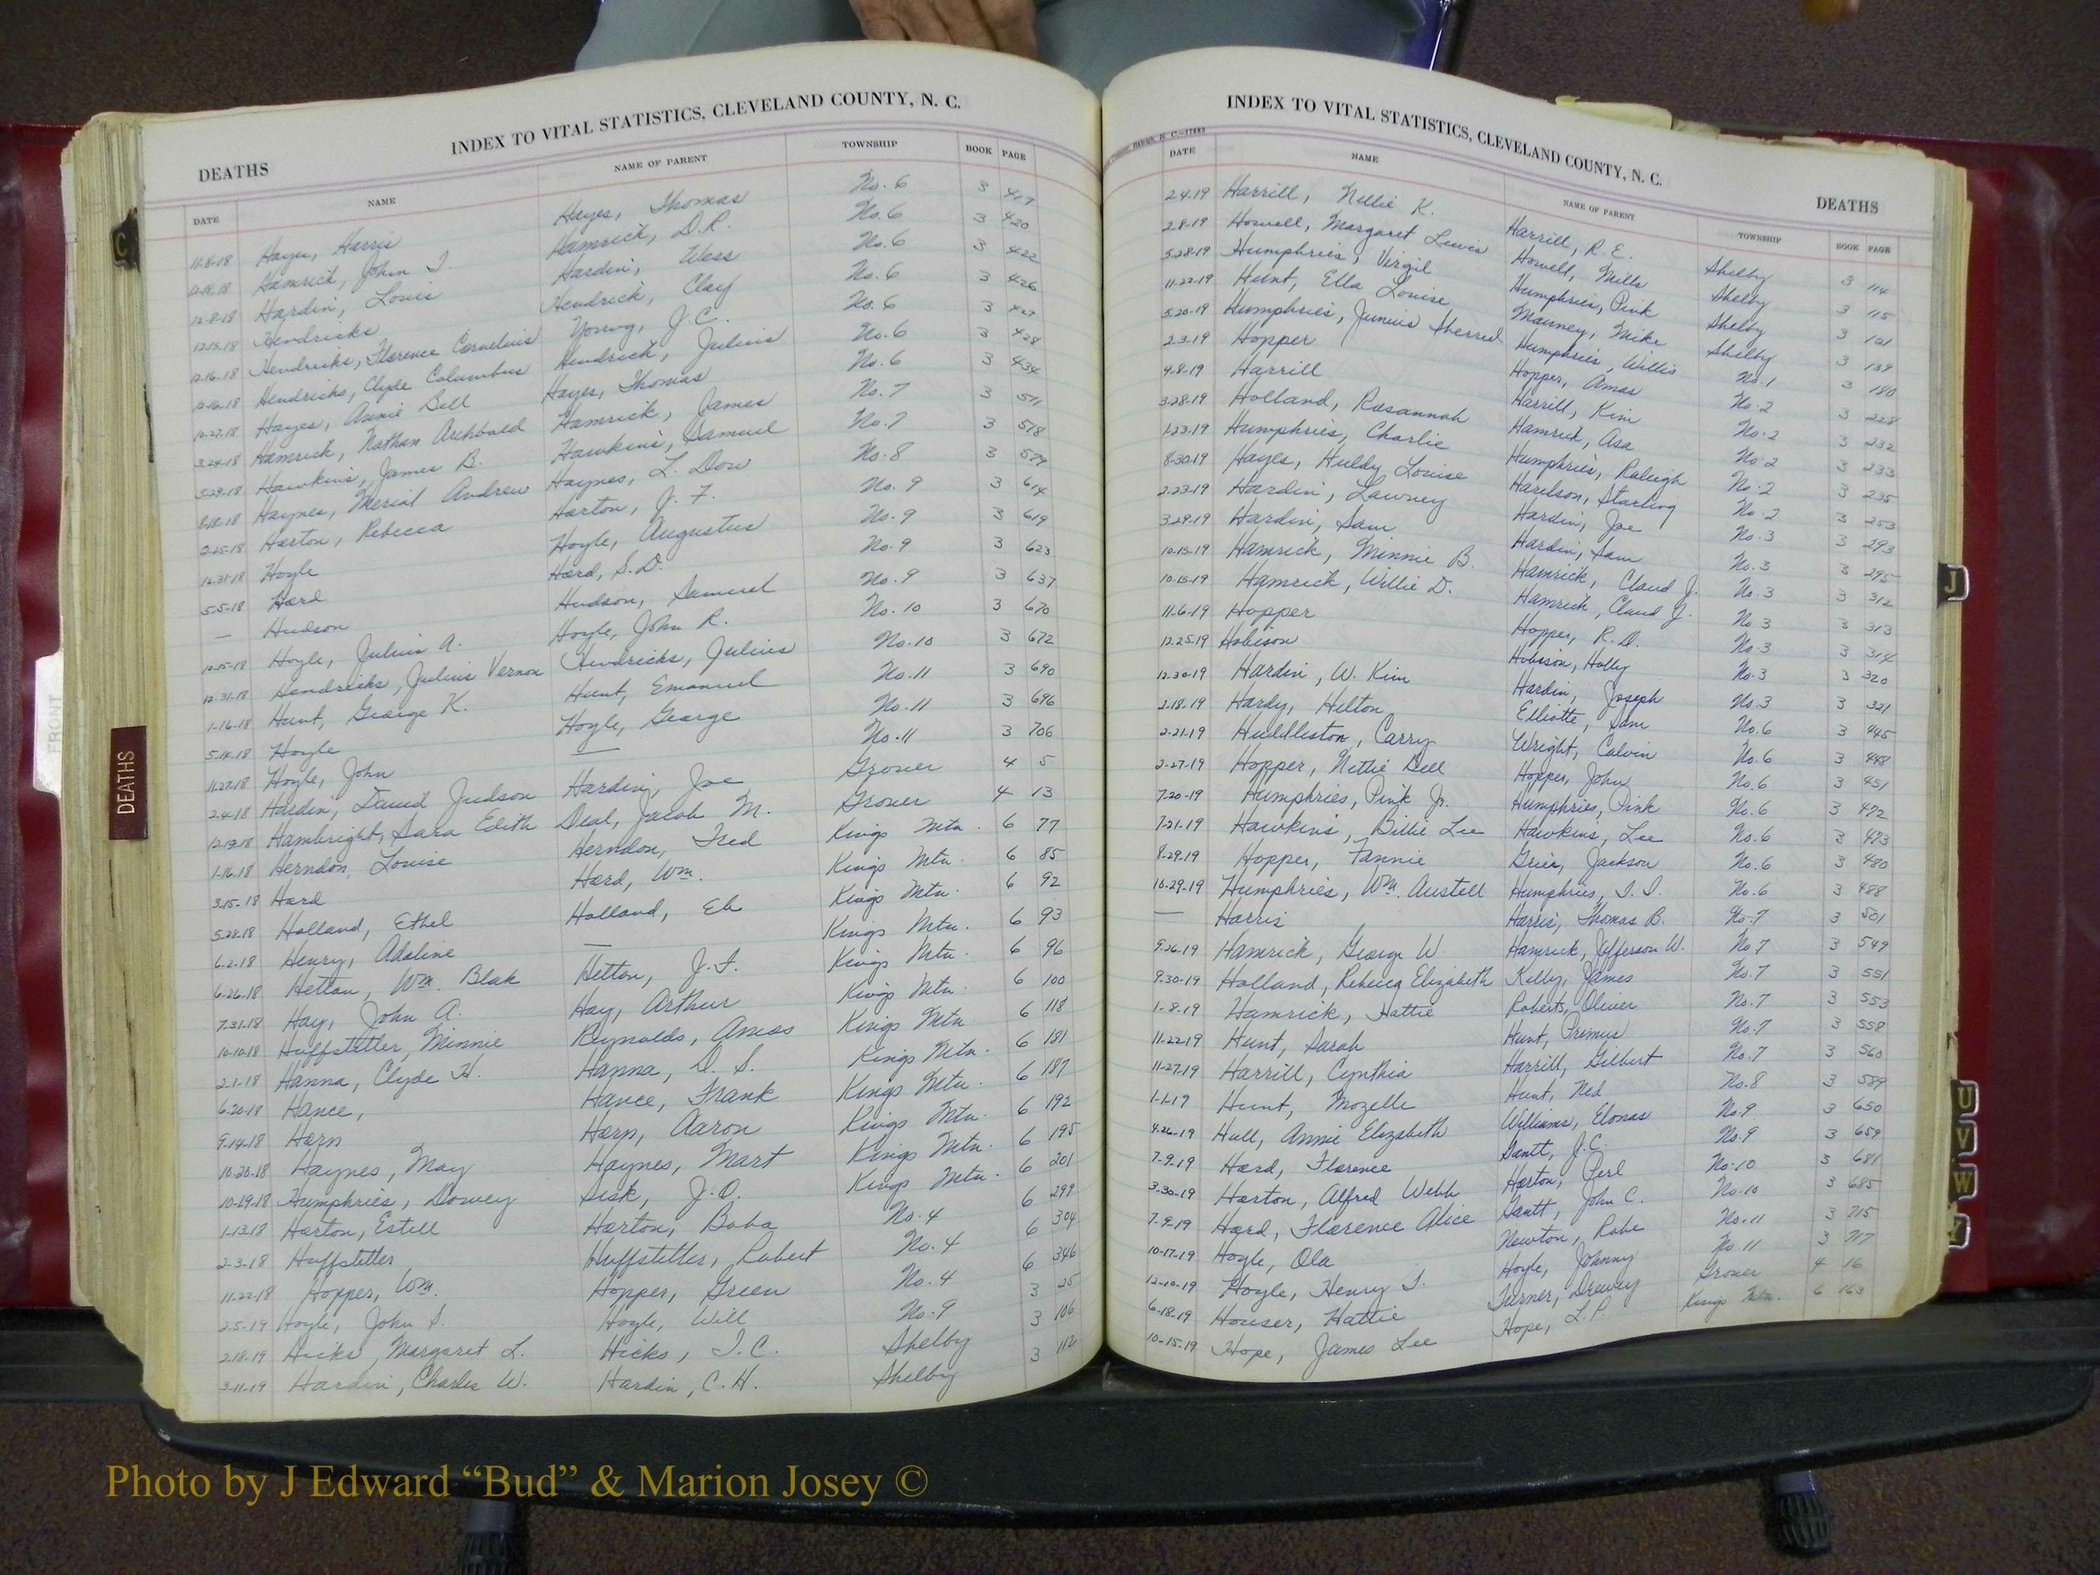 INDEX TO VITAL STATISTICS, CLEVELAND COUNTY, N. C.
DEATHS
DATE NAME NAME OF PARENT TOWNSHIP BOOK PAGE
11-8-18 Hayes, Harris Hayes, Thomas No. 6 3 419
Hamrick, John I. Hamrick, D.R. No. 6 3 420
12-8-18 Hardin, Louis Hardin, Wess No. 6 3 422
12-15-18 Hendricks Hendrick, Clay No. 6 3 426
12-16-18 Hendricks, Florence Cornelius Young, J.C. No. 6 3 427
12-16-18 Hendricks, Clyde Columbus Hendrick, Julius No. 6 3 428
10-27-18 Hayes, Annie Bell Hayes, Thomas No. 6 3 434
3-24-18 Hamrick, Nathan Archbald Hamrick, James No. 7 3 511
5-29-18 Hawkins, James B. Hawkins, Samuel No. 7 3 518
8-18-18 Haynes, Merial Andrew Haynes, L. Dow No. 8 3 579
2-25-18 Horton, Rebecca Horton, J. F. No. 9 3 614
12-31-18 Hoyle Hoyle, Augustus No. 9 3 619
5-5-18 Hord Hord, S.D. No. 9 3 623
— Hudson Hudson, Samuel No. 9 3 637
10-15-18 Hoyle, Julius A. Hoyle, John R. No. 10 3 670
12-31-18 Hendricks, Julius Vernon Hendricks, Julius No. 10 3 672
1-16-18 Hunt, George K. Hunt, Emanuel No. 11 3 690
5-14-18 Hoyle Hoyle, George No. 11 3 696
11-27-18 Hoyle, John — No. 11 3 706
2-4-18 Hardin, David Judson Hardin, Joe Grover 4 5
12-19-18 Hambright, Sara Edith Deal, Jacob M. Grover 4 13
1-16-18 Herndon, Louise Herndon, Fred Kings Mtn. 6 77
3-15-18 Hord Hord, Wm. Kings Mtn. 6 85
5-28-18 Holland, Ethel Holland, Eli Kings Mtn. 6 92
6-2-18 Henry, Adaline — Kings Mtn. 6 93
6-26-18 Hetton, Wm. Blak Hetton, J.F. Kings Mtn. 6 96
7-31-18 Hay, John A. Hay, Arthur Kings Mtn. 6 100
10-10-18 Huffstetler, Minnie Reynolds, Amos Kings Mtn. 6 118
2-1-18 Hanna, Clyde H. Hanna, D. S. Kings Mtn. 6 181
6-20-18 Hance, Hance, Frank Kings Mtn. 6 187
9-14-18 Horn Horn, Aaron Kings Mtn. 6 192
10-20-18 Haynes, May Haynes, Mart Kings Mtn. 6 195
10-19-18 Humphries, Dowey Sisk, J.O. Kings Mtn. 6 201
1-13-18 Horton, Estell Horton, Bobo No. 4 6 299
2-3-18 Huffstetler Huffstetler, Robert No. 4 6 304
11-22-18 Hopper, Wm. Hopper, Green No. 4 6 346
2-5-19 Hoyle, John S. Hoyle, Will No. 9 3 25
2-18-19 Hicks, Margaret L. Hicks, I.C. Shelby 3 106
3-11-19 Hardin, Charles W. Hardin, C.H. Shelby 3 112
INDEX TO VITAL STATISTICS, CLEVELAND COUNTY, N. C.
DEATHS
DATE NAME NAME OF PARENT TOWNSHIP BOOK PAGE
2-4-19 Harrill, Nellie K. Harrill, R. E. Shelby 3 114
2-8-19 Howell, Margaret Lewis Howell, Mills Shelby 3 115
5-28-19 Humphries, Virgil Humphries, Pink Shelby 3 121
11-22-19 Hunt, Ella Louise Mauney, Mike Shelby 3 139
5-20-19 Humphries, Junius Sherred Humphries, Willis No. 1 3 180
2-3-19 Hopper Hopper, Amos No. 2 3 228
4-8-19 Harrill Harrill, Kim No. 2 3 232
3-28-19 Holland, Rosannah Hamrick, Asa No. 2 3 233
1-23-19 Humphries, Charlie Humphries, Raleigh No. 2 3 235
8-30-19 Hayes, Huldy Louise Harelson, Starling No. 2 3 253
2-23-19 Hardin, Lawney Hardin, Joe No. 3 3 293
3-29-19 Hardin, Sam Hardin, Sam No. 3 3 295
10-15-19 Hamrick, Minnie B. Hamrick, Claud J. No. 3 3 312
10-15-19 Hamrick, Willie D. Hamrick, Claud J. No. 3 3 313
11-6-19 Hopper Hopper, R. D. No. 3 3 314
12-25-19 Hobison Hobison, Holly No. 3 3 320
12-30-19 Hardin, W. Kim Hardin, Joseph No. 3 3 321
2-18-19 Hardy, Hilton Elliotte, Sam No. 6 3 445
2-21-19 Huddleston, Carry Wright, Calvin No. 6 3 448
2-27-19 Hopper, Nettie Bell Hopper, John No. 6 3 451
7-20-19 Humphries, Pink Jr. Humphries, Pink No. 6 3 472
7-21-19 Hawkins, Billie Lee Hawkins, Lee No. 6 3 473
8-29-19 Hopper, Fannie Grier, Jackson No. 6 3 480
10-29-19 Humphries, Wm. Austell Humphries, I.I. No. 6 3 488
— Harris Harris, Thomas B. No. 7 3 501
9-26-19 Hamrick, George W. Hamrick, Jefferson W. No 7 3 549
9-30-19 Holland, Rebecca Elizabeth Kelly, James No. 7 3 551
1-8-19 Hamrick, Hattie Roberts, Oliver No. 7 3 553
11-22-19 Hunt, Sarah Hunt, Premus No. 7 3 558
11-27-19 Harrill, Cynthia Harrill, Gilbert No. 7 3 560
1-1-19 Hunt, Mozelle Hunt, Ned No. 8 3 589
4-26-19 Hull, Annie Elizabeth Williams, Elonas No. 9 3 650
7-9-19 Hord, Florence Gantt, J.C. No. 9 3 659
3-30-19 Horton, Alfred Webb Horton, Perl No. 10 3 681
7-9-19 Hord, Florence Alice Gantt, John C. No. 10 3 685
10-17-19 Hoyle, Ola Newton, Robe No. 11 3 715
12-10-19 Hoyle, Henry I. Hoyle, Johnny No 11 3 717
6-18-19 Houser, Hattie Turner, Drewey Grover 4 16
10-15-19 Hope, James Lee Hope, L.P. Kings Mtn. 6 163
C
FRONT
DEATHS
J
U
V
W
Photo by J Edward “Bud” & Marion Josey ©